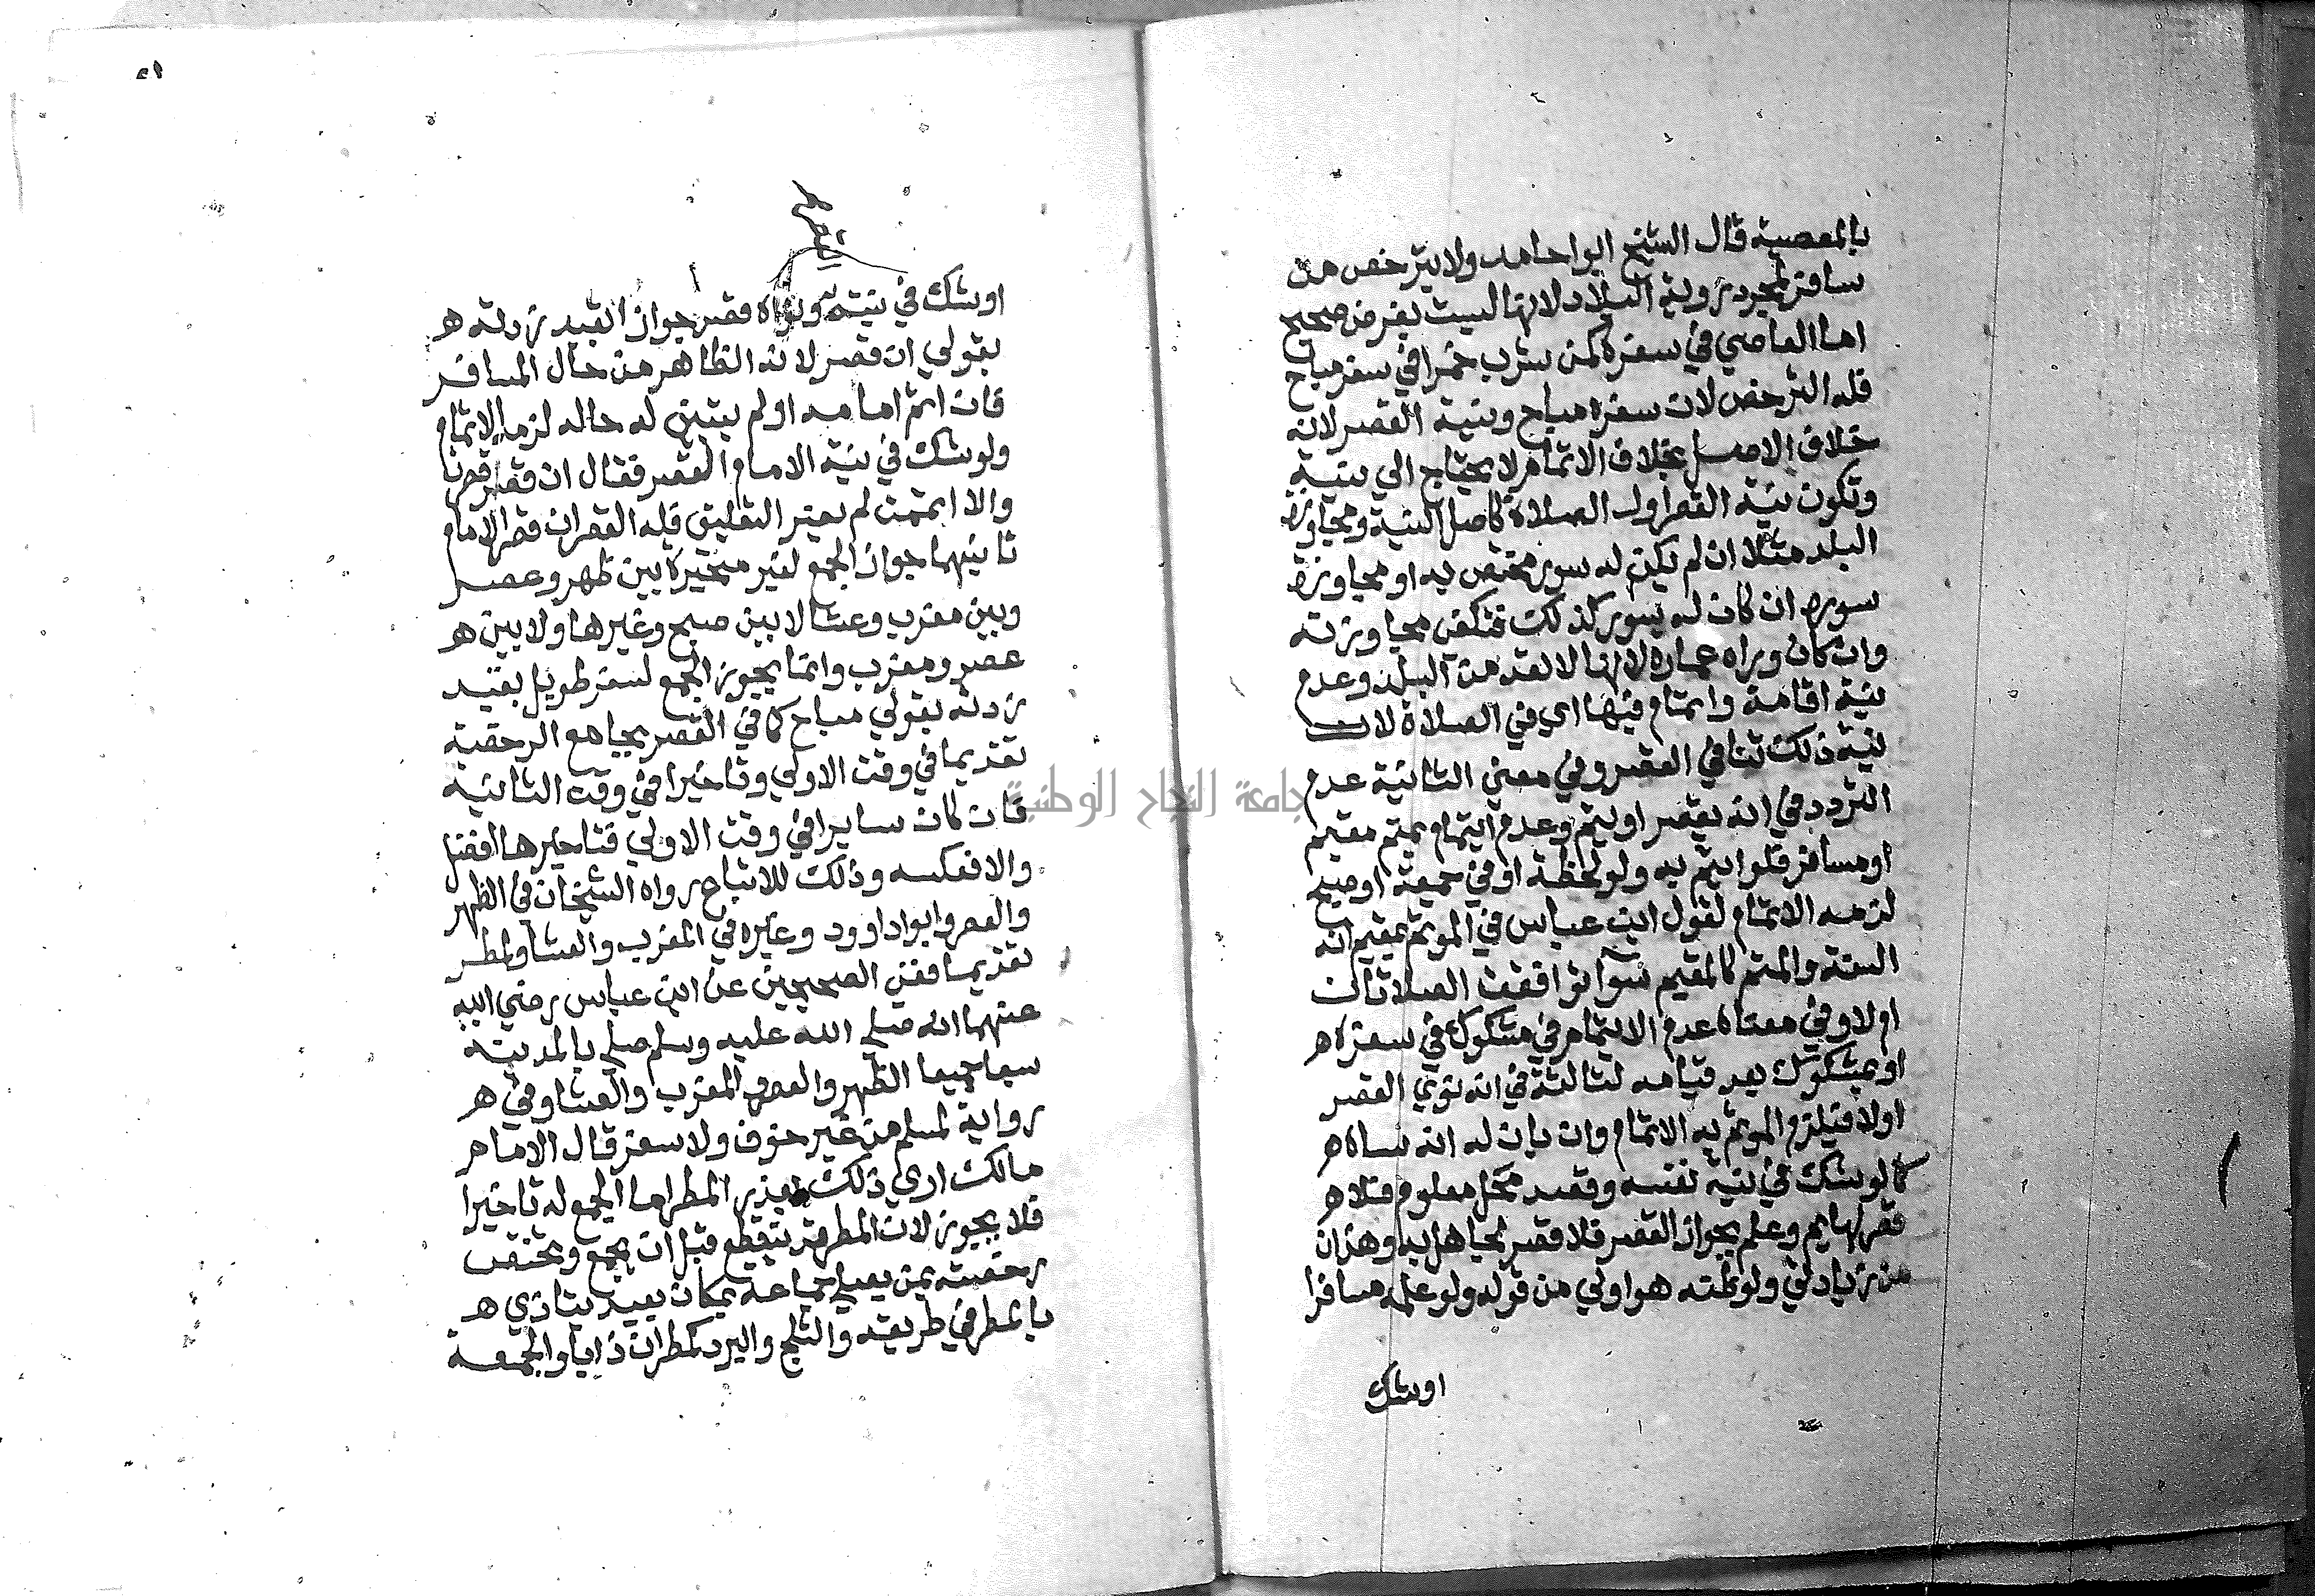 بالمعصية قال الشيخ ابوا حامد ولا يترخص من
سافر لمجرد روية البلاد لانها ليست بغرض صحيح
اما العاصي في سفره كمن شرب خمرا في سفر مباح
فله الترخص لان سفره مباح ونية القصر لانه
خلاف الاصل بخلاف الاتمام لا يحتاج الي نية
وتكون نية القصر اول الصلاة كاصل النية ومجاوزة
البلد مثلا ان لم يكن له سور مختص به او مجاوزة
سوره ان كان له سور كذلك فتكفي مجاوزته
وان كان وراه عمارة لانها لا تعد من البلد وعدم
نية اقامة واتمام فيها اي في الصلاة لان
نية ذلك تنافي القصر وفي معني الثانية عدم
التردد في انه يقصر او يتم وعدم ائتمام بمتم مقيم
او مسافر فلو ائتم به ولو لحظة او في جمعة او صبح
لزمه الاتمام لقول ابن عباس في الموتم بمقيم انه
السنة والمتم كالمقيم سوا توافقت الصلاتان
ام لا وفي معناه عدم الائتمام في مشكوك في سفره
او بمشكوك بعد قيامه لثالثة في انه نوي القصر
اولا فيلزم الموتم به الاتمام وان بان له انه ساه
كما لو شك في نية نفسه وقصد محل معلوم فلا
قصر لهايم وعلم بجواز القصر فلا قصر لجاهل به وهذان
من زيادتي ولو ظنه هو اولي من قوله ولو علمه مسافرا
اوشك
٤١
اوشك في نيته ونواه قصر جوازا لقيد زدته
بقولي ان قصر لانه الظاهر من حال المسافر
فان اتم امامه او لم يتبين له حاله لزمه الاتمام
ولو شك في نية الامام القصر فقال ان قصر قصرنا
والا اتممت لم يضر التعليق فله القصر ان قصر الامام
ثانيهما جواز الجمع لغير متحيرة بين ظهر وعصر
وبين مغرب وعشا لا بين صبح وغيرها ولا بين
عصر ومغرب وانما يجوز الجمع لسفر طويل بقيد
زدته بقولي مباح كما في القصر بجامع الرخصة
تقديما في وقت الاولي وتاخيرا في وقت الثانية
فان كان سايرا في وقت الاولي فتاخيرها افضل
والا فعكسه وذلك للاتباع رواه الشيخان في الظهر
والعصر وابوا داوود وغيره في المغرب والعشا ولمطر
تقديما ففي الصحيحين عن ابن عباس رضي الله
عنهما انه صلي الله عليه وسلم صلي بالمدينة
سبعا جميعا الظهر والعصر والمغرب والعشا وفي
رواية لمسلم من غير خوف ولا سفر قال الامام
مالك اري ذلك بعذر المطر اما الجمع له تاخيرا
فلا يجوز لان المطر قد ينقطع قبل ان يجمع ويختص
رخصته بمن يصلي جماعة بمكان بعيد يتاذي
بالمطر في طريقه والثلج والبرد كمطر ان ذابا والجمعة
جامعة النجاح الوطنية